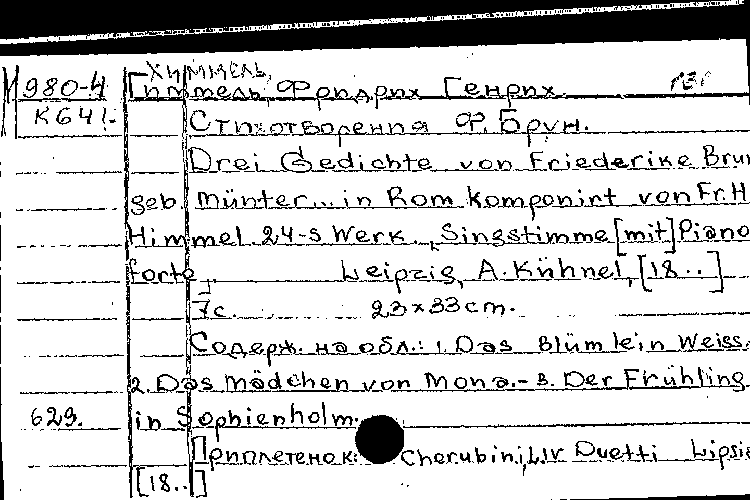 ХИММЕЛЬ,
М980-4 Гиммель, Фридрих Генрих.
К641.- Стихотворения Ф. Брун.
Drei Gedichte von Friederike Brun
geb. Münter... in Rom komponirt von Fr. H
Himmel 24-s Werk. Singstimme [mit] Piano
forte. Leipzig, A. Kühnel, [18..]
7с. 23×33 cm.
Содерж. на обл.: 1. Das Blümlein Weiss.
2. Das Mädchen von Mona.- 3. Der Frühling
629. in Sophienholm.
Приплетенок: Cherubini, L. IV Duetti Lipsie
[18..]